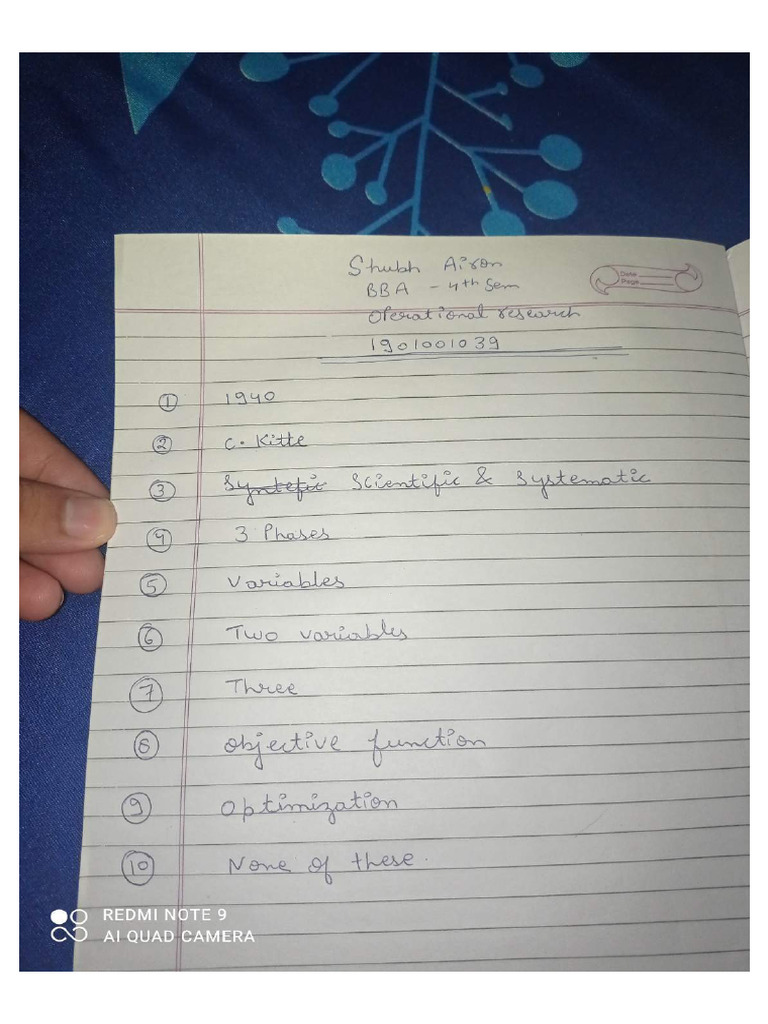 Shubh Airon
BBA - 4th Sem
Date
Page
Operational research
1901001039
① 1940
② C. Kitte
③ Syntefic Scientific & Systematic
④ 3 Phases
⑤ Variables
⑥ Two variables
⑦ Three
⑧ Objective function
⑨ Optimization
⑩ None of these.
REDMI NOTE 9
AI QUAD CAMERA